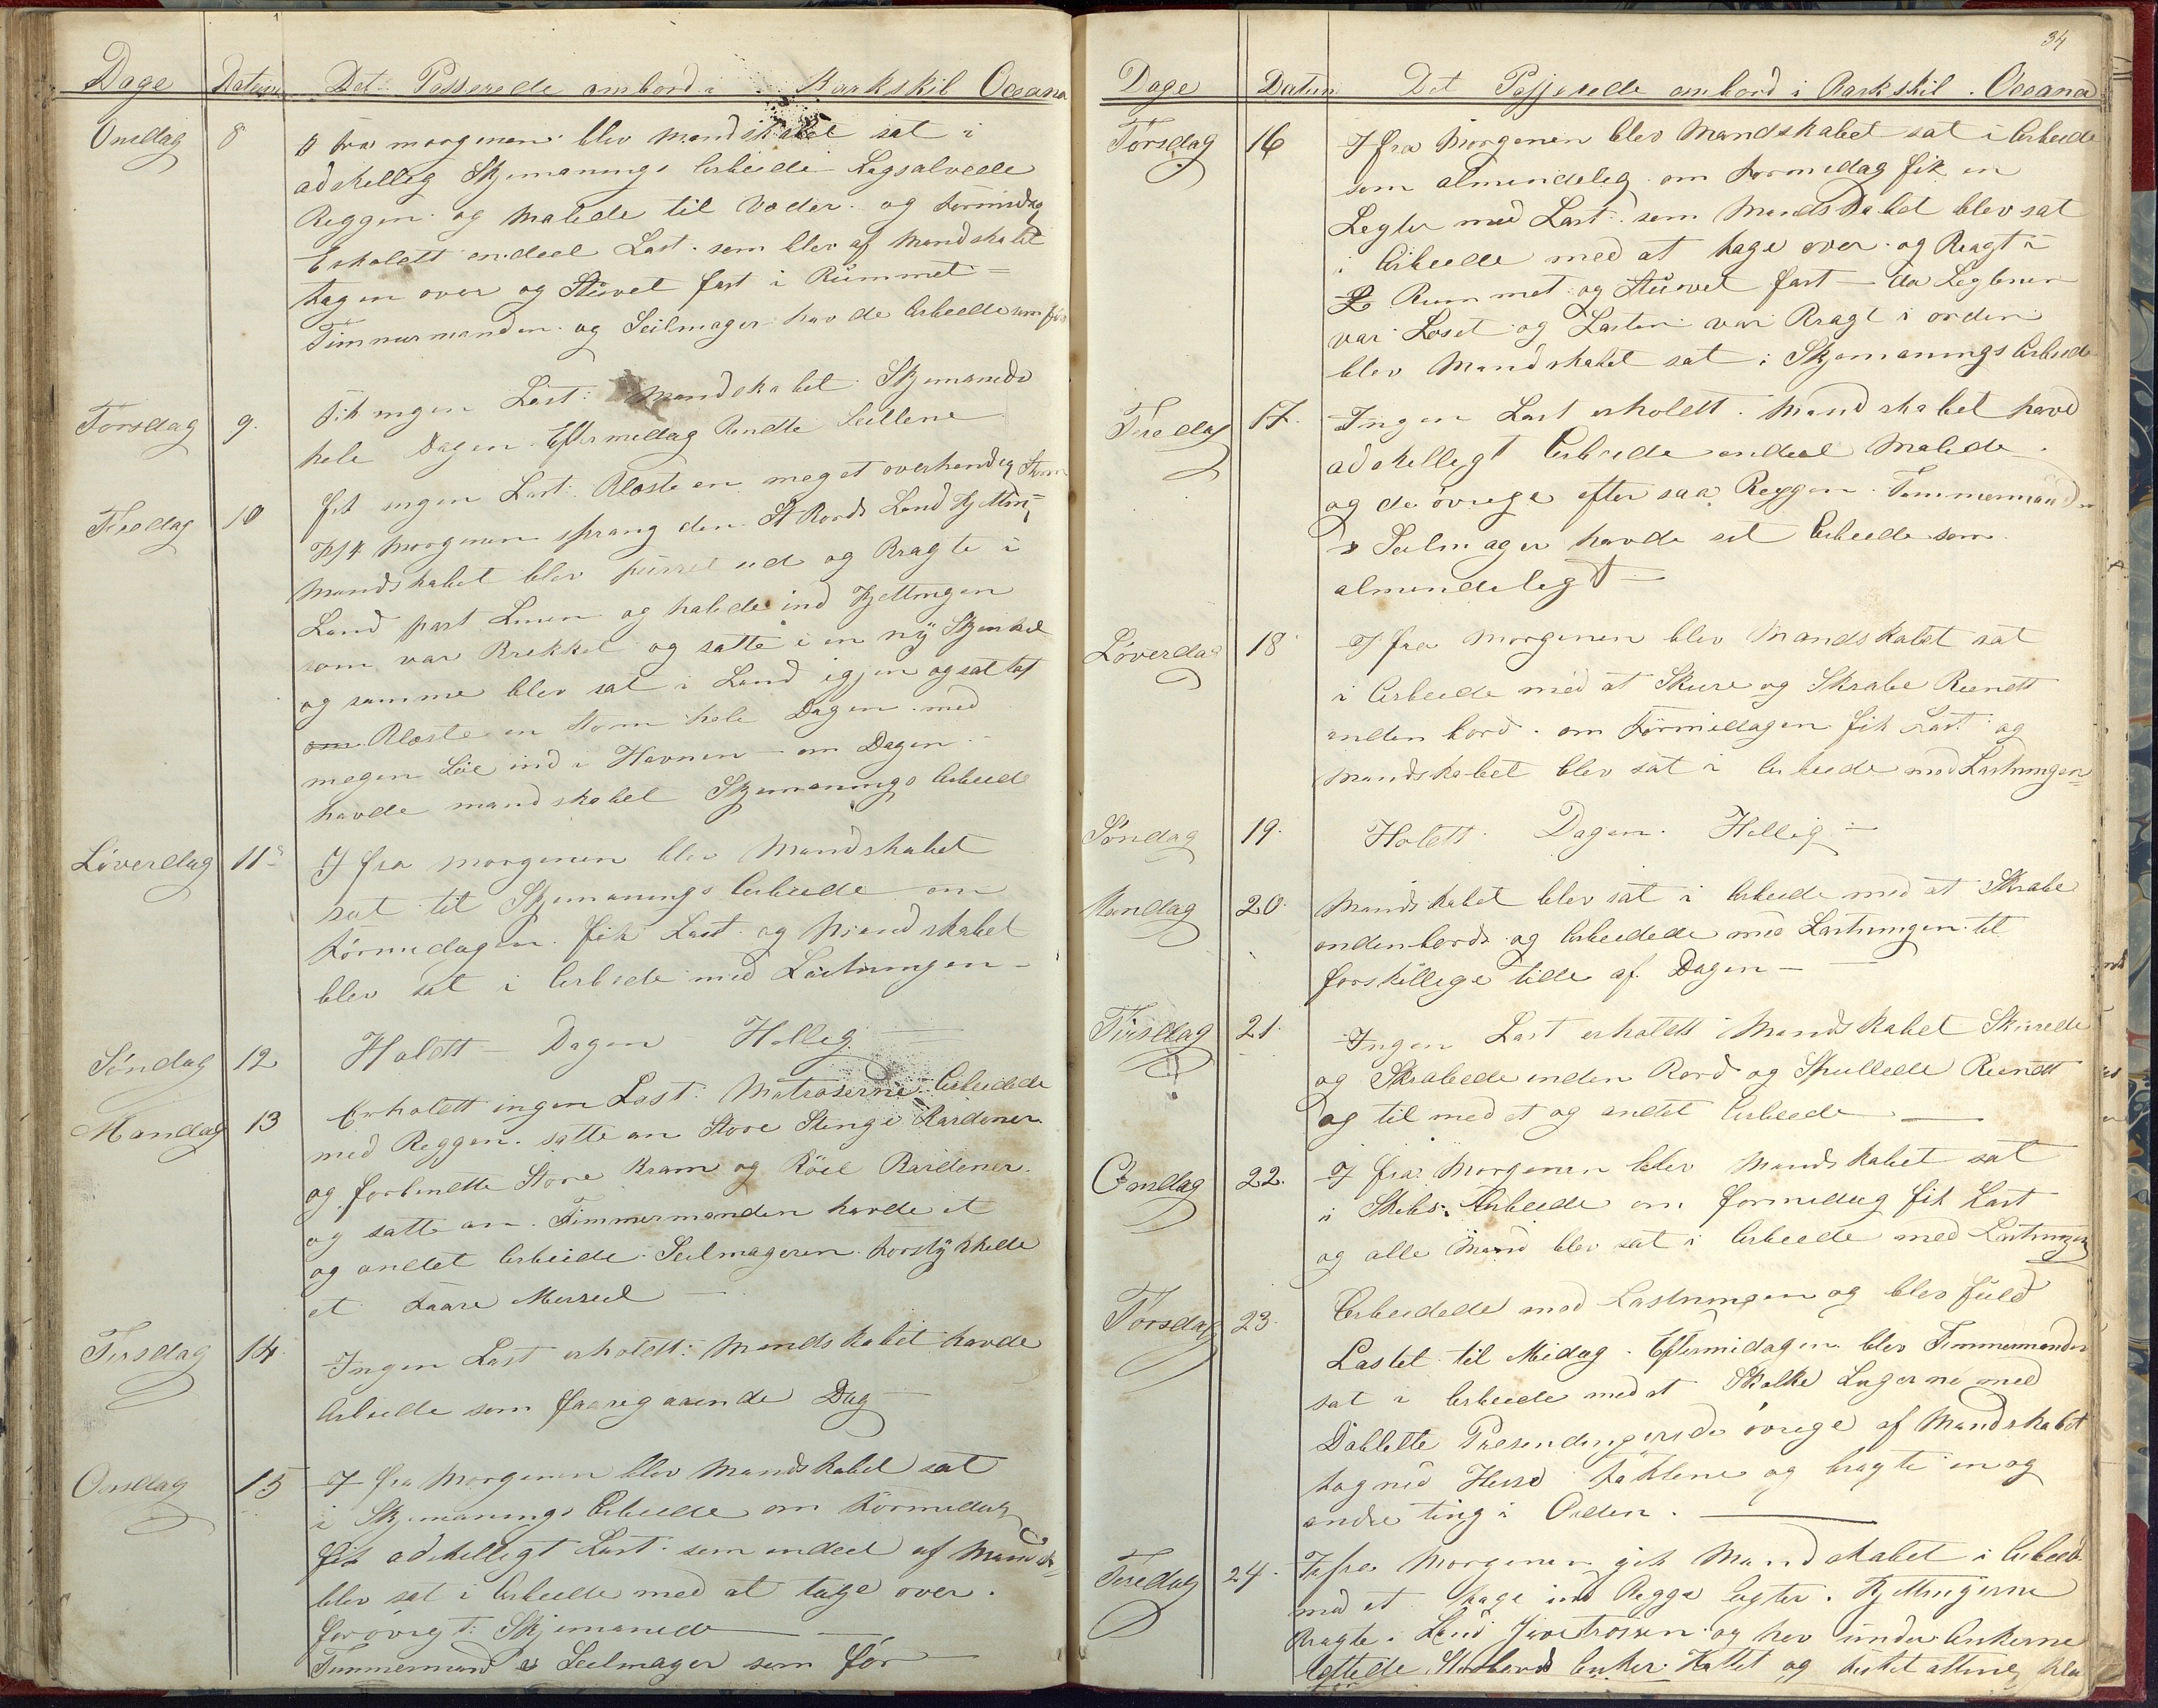 Dage Datum Det Passerede ombord i Barkskib Oceana
Onsdag 8 I fra morgenen blev Mandskabet sat i
adskillig Skjemanings Arbeide Lagsalvede
Reggen og Malede til Væder og formidag
Erholdtt endeel Last som blev af Mandskabet
tagen over og Stuvet fast i Rummet =
Timmermanden og Seilmager havde Arbeide som før
Torsdag 9. Fik ingen Last: Mandskabet Skjemanede
hele Dagen Eftermedag Rendte Seillene
Fredag 10 fik ingen Last: Blæste en meget overhendig Storm
Kl 4 Morgenen sprang den St Bords Land Kjetting
Mandskabet blev purret ud og Bragte i
Land part Linen og halede ind Kjettingen
som var Brekket og satte i en ny Skjenkel
og samme blev sat i Land igjen og sat tot
Blæste en Storm hele Dagen med
megen Söe ind i Havnen om Dagen
havde mandskabet Skjemanings Arbeide
Löverdag 11 I fra morgenen blev Mandskabet
sat til Skjemanings Arbeide om
Formedagen fik Last og Mandskabet
blev sat i Arbeide med Lastningen -
Söndag 12 Holdtt - Dagen Hellig
Mandag 13 Erholdtt ingen Last: Matroserne Arbeidede
med Reggen. satte an Store Stenge Bardener
og forbendtte Store Bram og Röiel Bardener.
og satte an. Timmermanden havde et
og andet Arbeide. Seilmageren forstykkede
et Faare Merseil -
Tirsdag 14. Ingen Last erholdtt: Mandskabet havde
Arbeide som faaregaaende Dag -
Onsdag 15 I fra Morgenen blev Mandskabet sat
i Skjemanings Arbeide om Formedag
fik adskelligt Last som endeel af Mandsk=
blev sat i Arbeide med at tage over.
forövregt Skjemanede
Timmermand & Seilmager som för -
34
Dage Datum Det Passerede ombord i Barkskib. Oceana
Torsdag 16 I fra Morgenen blev Mandskabet sat i Arbeide
som almindelig om Formedag fik en
Legter med Last. som Mandskabet blev sat
i Arbeide med at tage over og Bragt i
Rummet og Stuvet fast - da Legteren
var Loset og Lasten var Bragt i orden
blev Mandskabet sat i Skjemanings Arbeide
Fredag 17. Ingen Last erholdtt. Mandskabet havde
adskelligt Arbeide endeel Malede
og de övrege efter saa Reggen. Timmermanden
& Seilmager havde sit Arbeide som
almendeligt =
Löverdag 18 I fra morgenen blev Mandskabet sat
i Arbeide med at Skure og Skrabe Rendtt
enden bord. om Formidagen fik Last og
Mandskabet blev sat i Arbeide med Lastningen=
Söndag 19. Holdtt. Dagen. Hellig -
Mandag 20. Mandskabet blev sat i Arbeide med at Skrabe
endenbords og Arbeidede med Lastningen til
forskillige tider af Dagen -
Tirsdag 21. Ingen Last erholdtt Mandskabet Skurede
og Skrabede enden Bord og Spullede Rendtt
og til med et og andet Arbeide
Onsdag 22. I fra Morgenen blev Mandskabet sat
i Skibs Arbeide om formedag fik Last
og alle Mand blev sat i Arbeide med Lastningen
Torsdag 23. Arbeidede med Lastningen og blev fuld
Lastet til Midag. Eftermidagen blev Timmermanden
sat i Arbeide med at Skalke Lugerne med
Dobbelte Presendinger de övrege af Mandskabet
tog ned Heise taklene og bragte en og
andre ting i Orden.
Fredag 24. Ifra Morgenen gik Mandskabet i Arbeide
med at tage ind Regge Legter. Kjettingerne
Bragte i Land Jivetrossen og hev under Ankerne
lettede Storbords Anker. Kattet og fisket